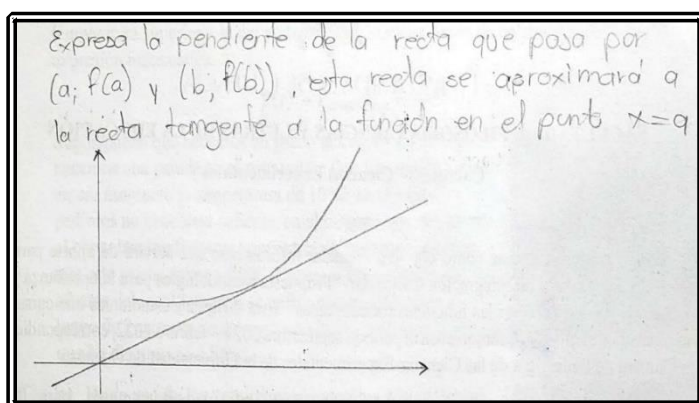 Expresa la pendiente de la recta que pasa por
(a; f(a) y (b, f(b)), esta recta se aproximará a
la recta tangente a la función en el punto x=a